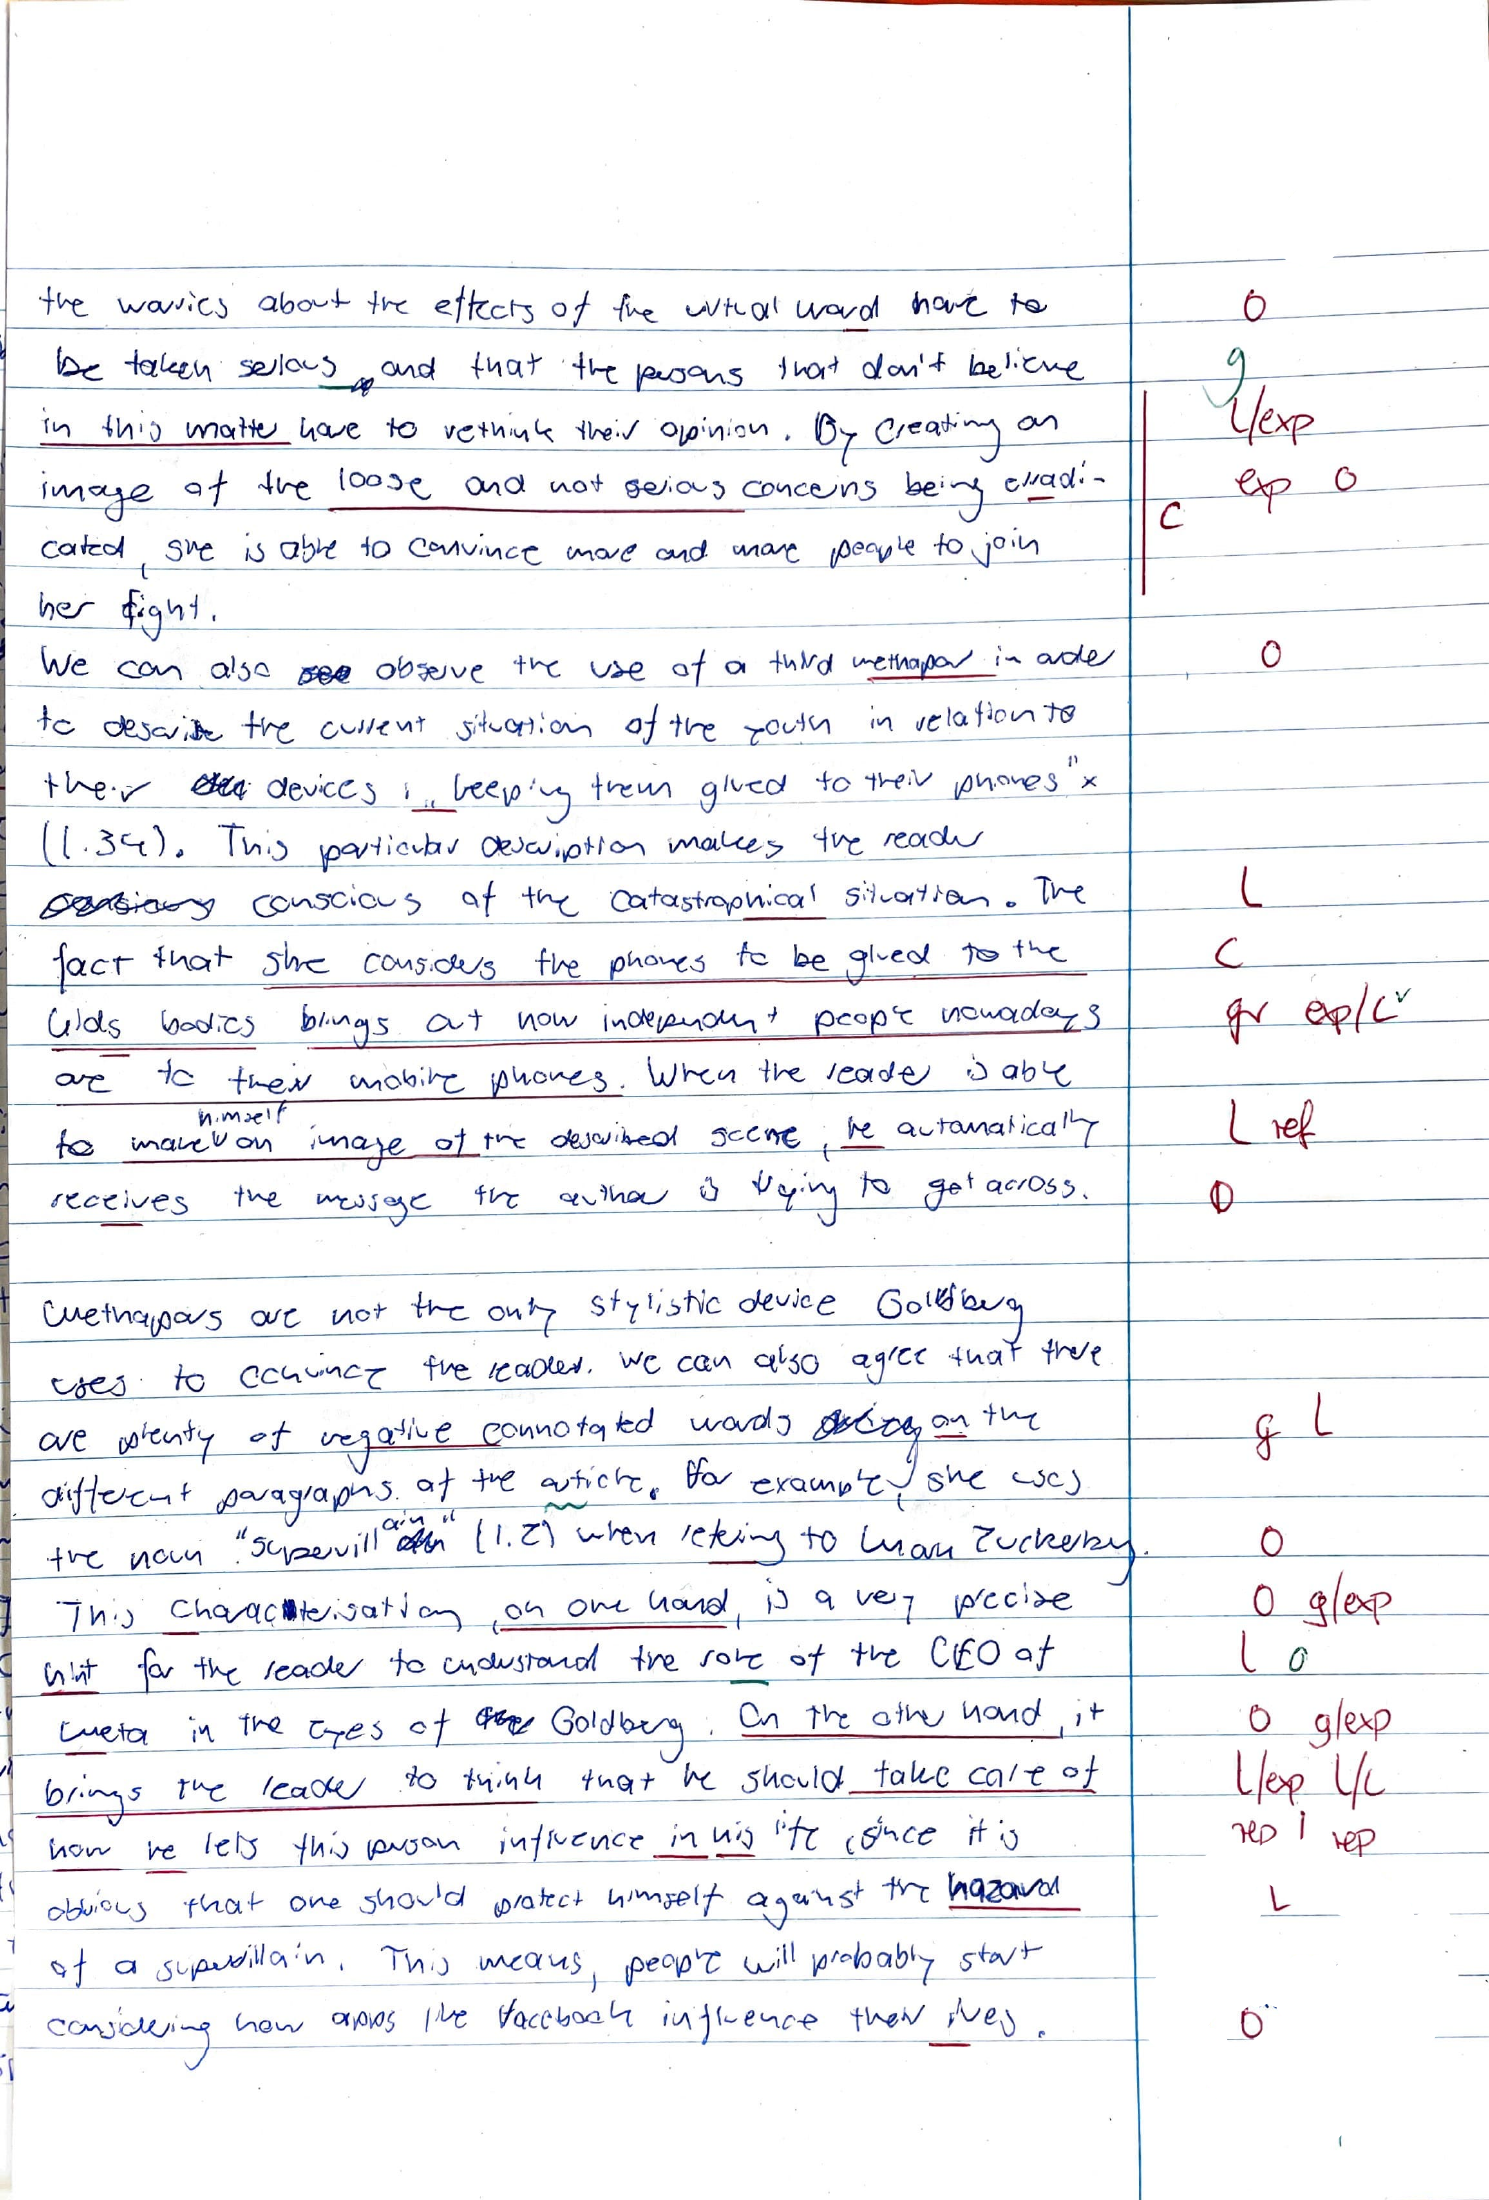 the worries about the effects of the virtual word have to O
be taken serious, and that the persons that don't believe g
in this matter have to rethink their opinion. By creating an L/exp
image of the loose and not serious concerns being erradi- exp O
C
cated, she is able to convince more and more people to join
her fight.
We can also observe the use of a third methapor in order O
to describe the current situation of the youth in relation to
their devices: „keeping them glued to their phones"
(l.34). This particular description makes the reader
conscious of the catastrophical situation. The L
fact that she considers the phones to be glued to the C
kids bodies brings out how independent people nowadays gr exp/C
are to their mobile phones. When the reader is able
to make himself an image of the described scene, he automatically L ref
receives the message the author is trying to get across. O
Methapors are not the only stylistic device Goldberg
uses to convince the reader. We can also agree that there
are plenty of negative connotated words on the g L
different paragraphs of the article. For example, she uses
the noun "supervillain" (l.2) when refering to Mark Zuckerberg. O
This characterisation, on one hand, is a very precise O g/exp
hint for the reader to understand the role of the CEO of L O
Meta in the eyes of Goldberg. On the other hand, it O g/exp
brings the reader to think that he should take care of L/exp L/C
how he lets this person influence in his life, since it is rep rep
obvious that one should protect himself against the hazard L
of a supervillain. This means, people will probably start
considering how apps like Facebook influence their lives. O